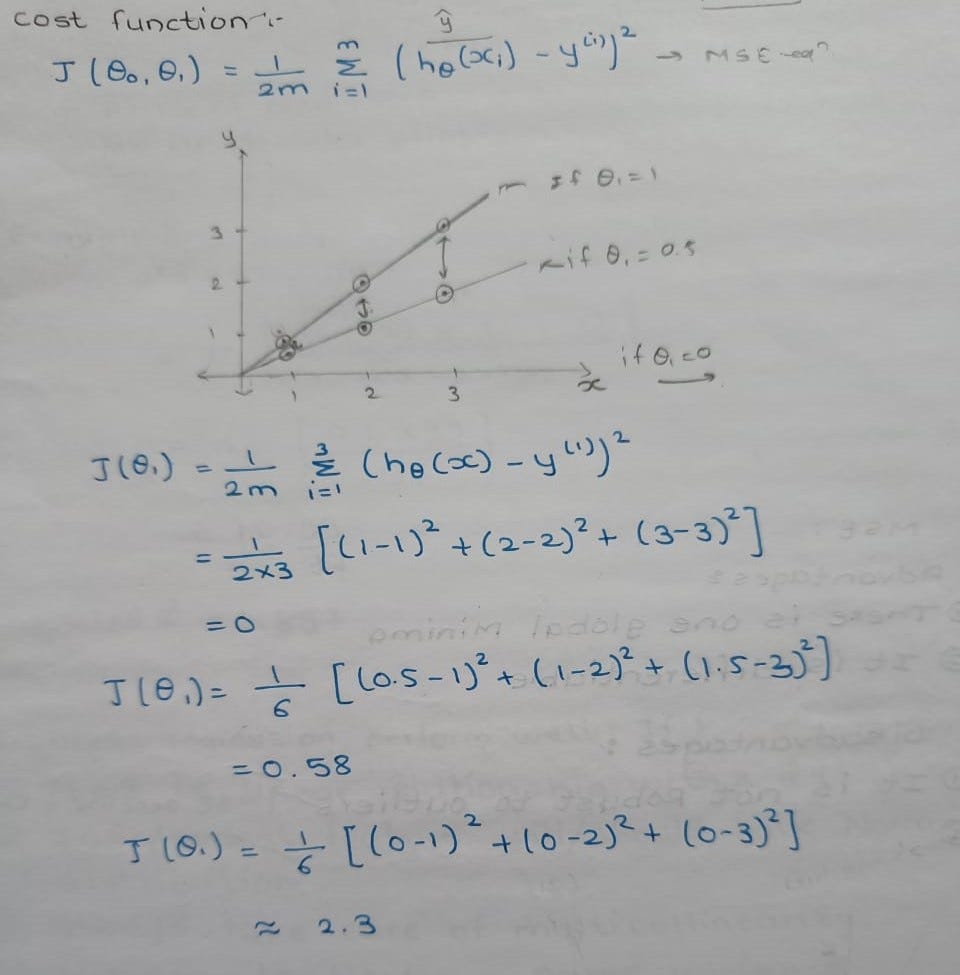 cost function :-
ŷ
J (θ₀, θ₁) = 1/2m m Σ i=1 (hθ(xᵢ) - y⁽ⁱ⁾)² → MSE eqⁿ
y
If θ₁ = 1
3
if θ₁ = 0.5
2
1
if θ₁ = 0
1 2 3 x
J(θ₁) = 1/2m 3 Σ i=1 (hθ(x) - y⁽ⁱ⁾)²
= 1/2×3 [(1-1)² + (2-2)² + (3-3)²]
= 0
J(θ₁) = 1/6 [(0.5-1)² + (1-2)² + (1.5-3)²]
= 0.58
J(θ₁) = 1/6 [(0-1)² + (0-2)² + (0-3)²]
≈ 2.3